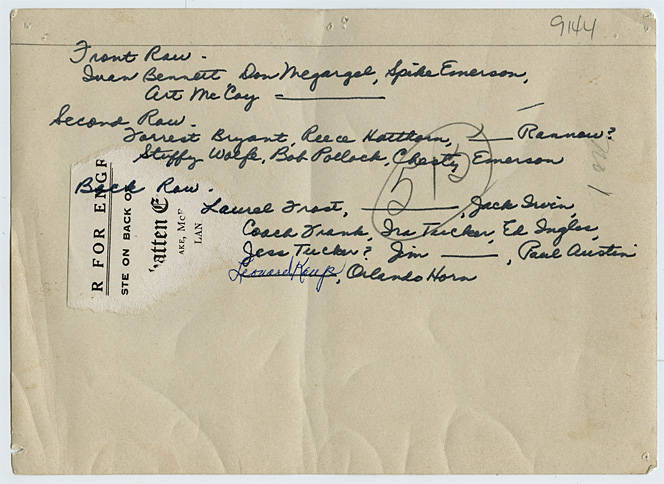 9144
Front Row.
Ivan Bennett Don Megargel, Spike Emerson,
Art McCoy ———
Second Row.
Forrest Bryant, Reece Hatthorn, —— Rannow?
Steffy Wolfe, Bob Pollock, Chesty Emerson
515
Back Row.
Laurel Frost, ———, Jack Irvin,
Coach Frank, Ira Tucker, Ed Ingles,
Jess Tucker? Jim ———, Paul Austin
Leonard, Orlando Horn
R FOR ENGR
STE ON BACK OF
atten E
AKE, McP
LAN